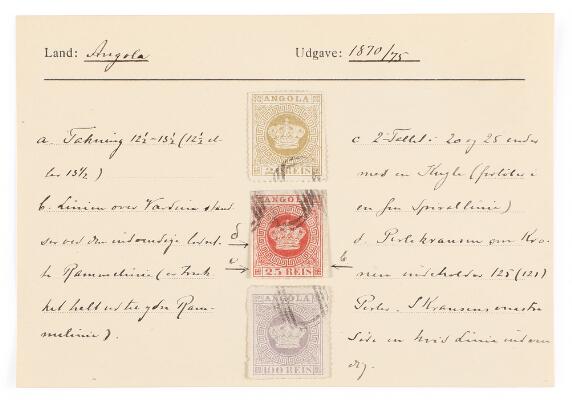 Land: Angola
Udgave: 1870/75
a. Takning 12½-13½ (12½ el-
ler 13½)
b. Linien over Værdien stand-
ser ved den indvendige lodret-
te Rammelinie (er truk-
ket helt ud til ydre Ram-
melinie).
ANGOLA
REIS
ANGOLA
25 REIS
d
c
b
ANGOLA
100 REIS
c 2-Tallet i 20 og 25 ender
med en Kugle (forløber i
en fin Spirallinie)
d. Perlekransen om Kro-
nen indeholder 125 (121)
Perler. I Kransens venstre
Side en hvid Linie